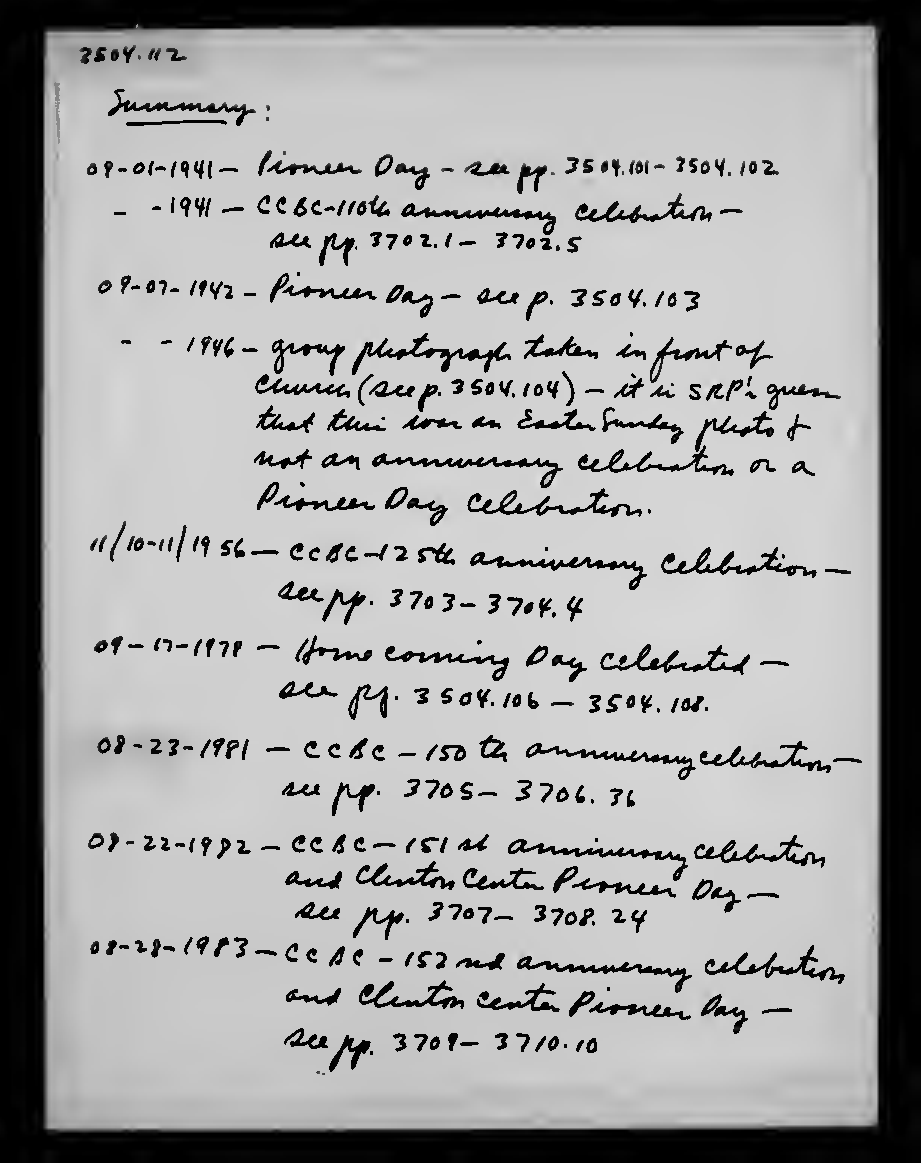 3504.112
Summary:
09-01-1941 — Pioneer Day - see pp. 3504.101 - 3504.102
- -1941 — CCBC-110th anniversary celebration —
see pp. 3702.1 - 3702.5
09-07-1942 - Pioneer Day - see p. 3504.103
- - 1946 - group photograph taken in front of
church (see p. 3504.104) - it is SRP's guess
that this was an Easter Sunday photo &
not an anniversary celebration or a
Pioneer Day celebration.
11/10-11/1956 — CCBC-125th anniversary celebration —
see pp. 3703 - 3704.4
09-17-1978 — Homecoming Day celebrated —
see pp. 3504.106 — 3504.108.
08-23-1981 — CCBC - 150th anniversary celebration —
see pp. 3705 - 3706.36
08-22-1982 — CCBC - 151st anniversary celebration
and Clinton Center Pioneer Day —
see pp. 3707 - 3708.24
08-28-1983 — CCBC - 152nd anniversary celebration
and Clinton Center Pioneer Day —
see pp. 3709 - 3710.10